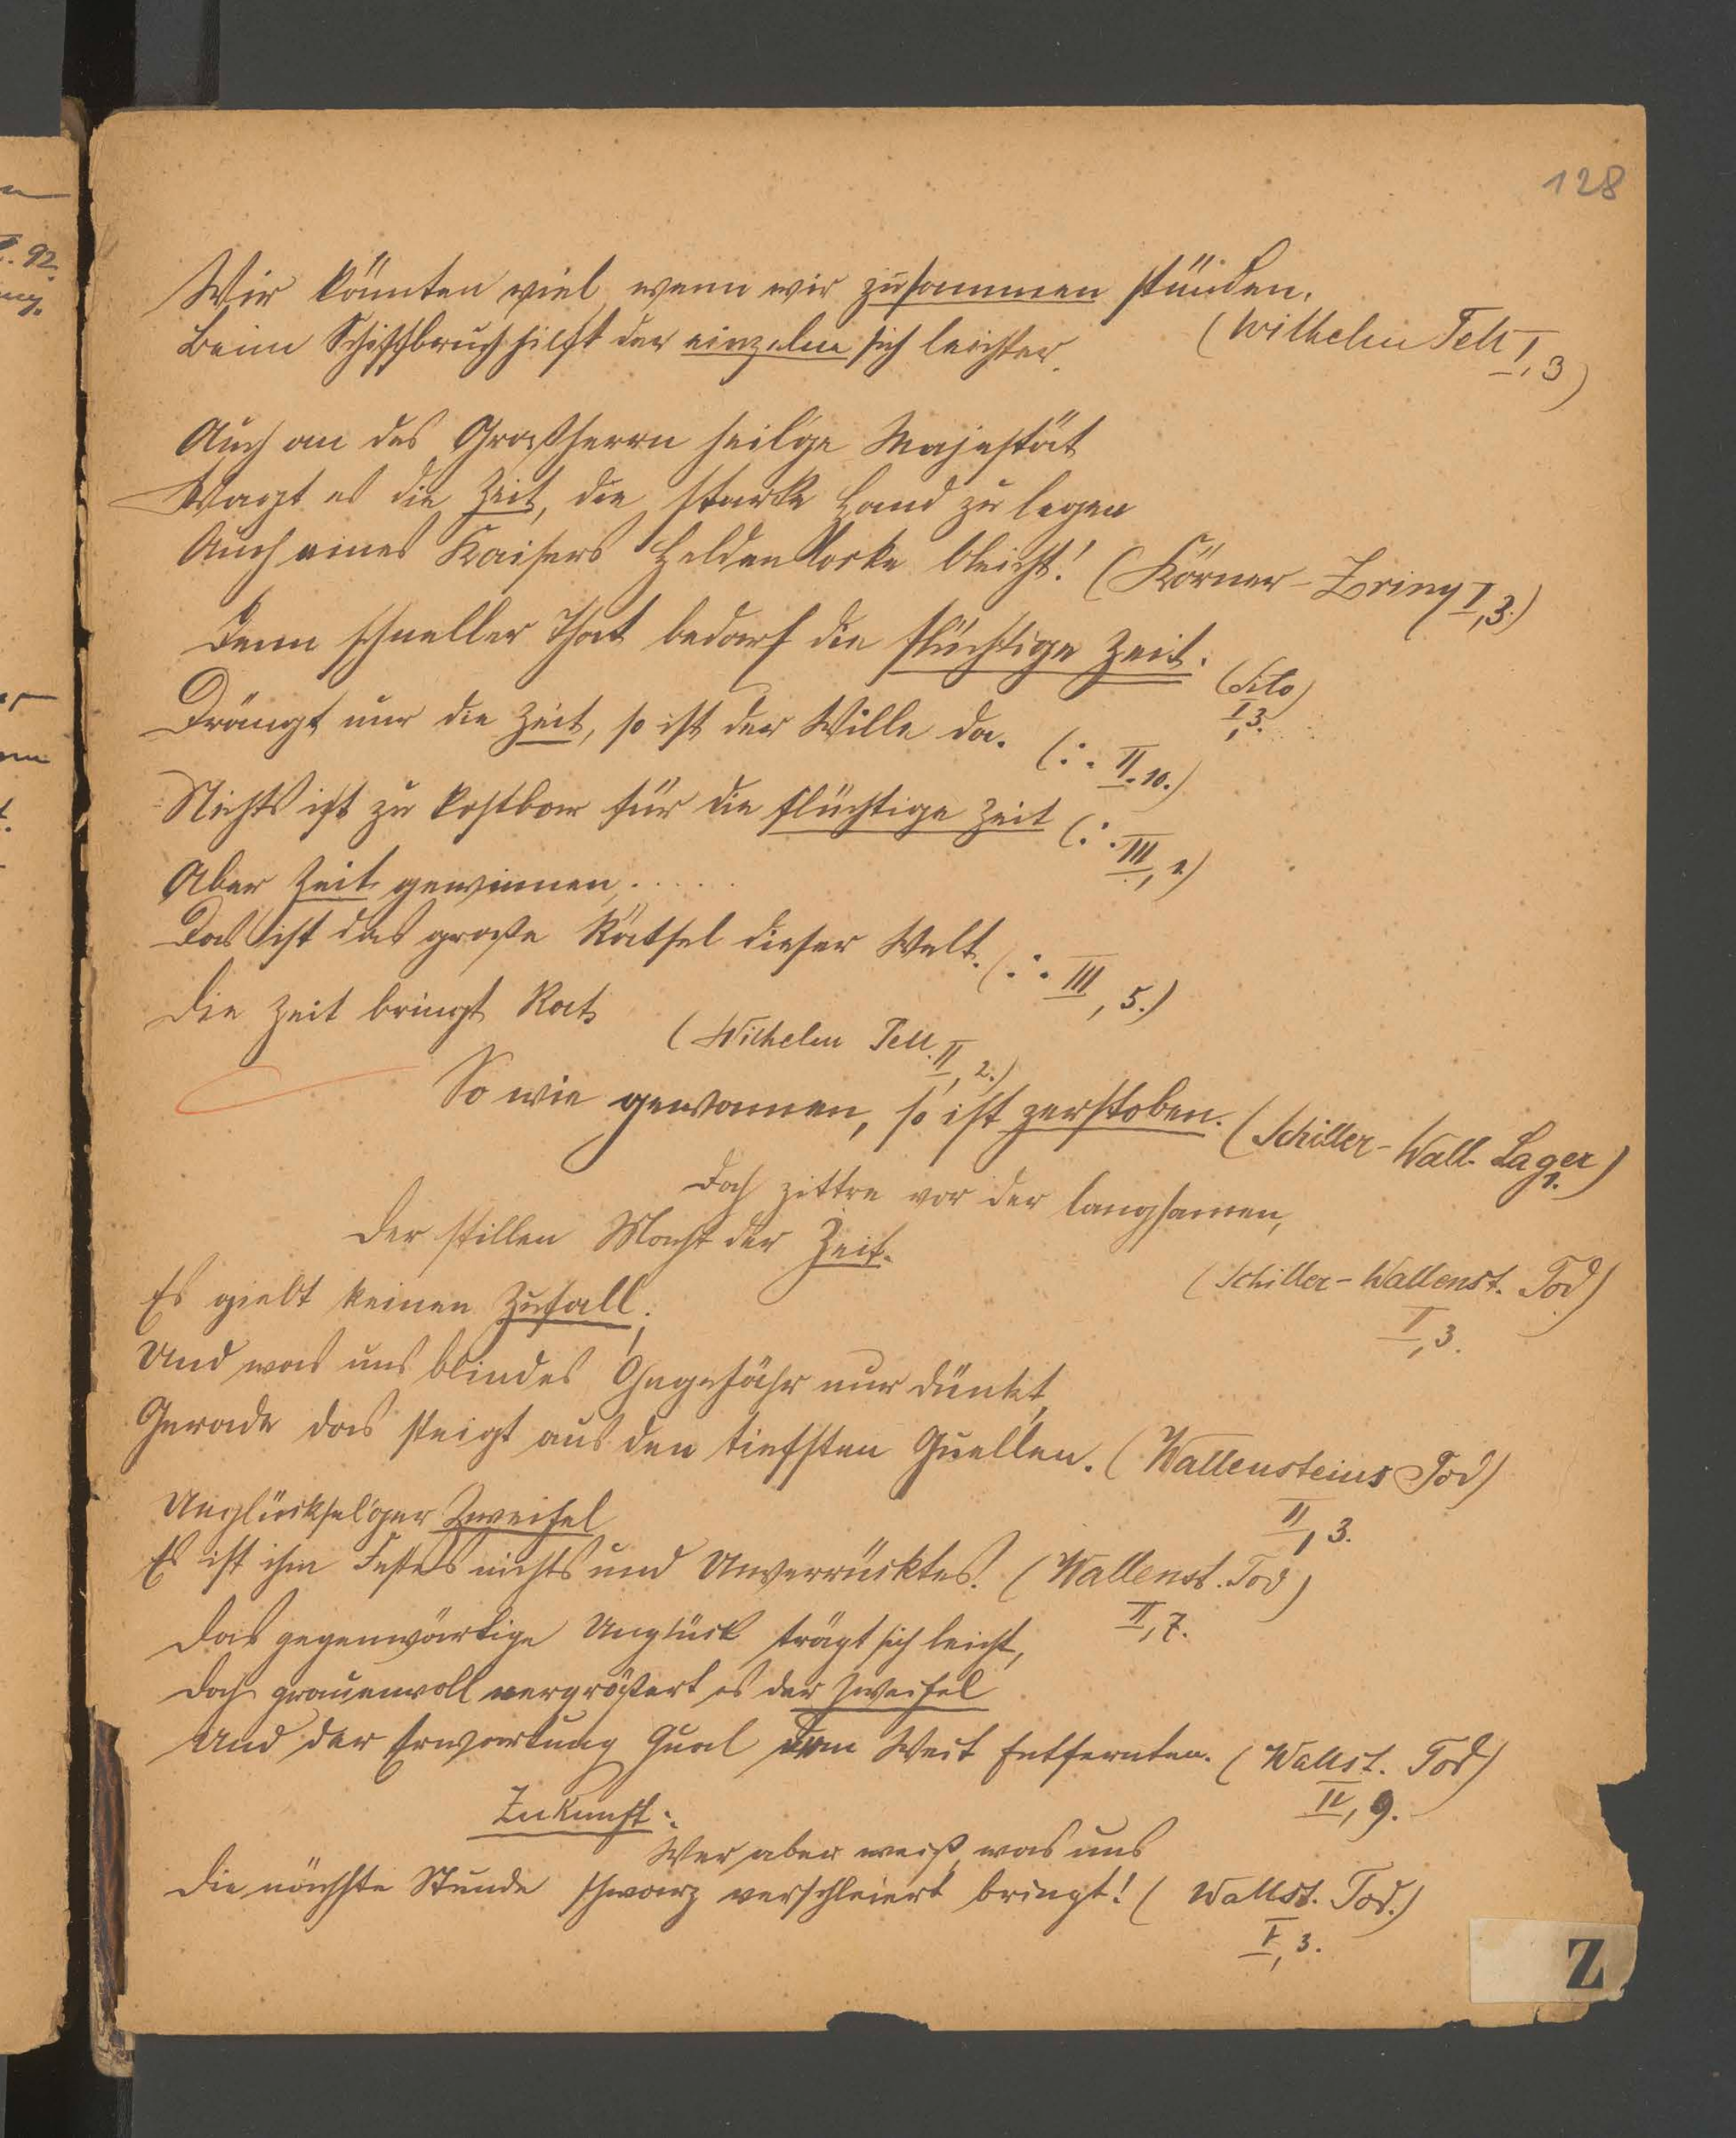 128
Wir könnten viel, wenn wir zusammen stünden.
Beim Schiffbruch hilft der einzelne sich leichter.
(Wilhelm Tell I, 3)
Auch an des Großherrn heilge Majestät
Wagt es die Zeit, die starke Hand zu legen
Auch eines Kaisers Heldenlocke bleicht! (Körner-Zriny I, 3.)
Denn schneller That bedarf die flüchtige Zeit.
(dito)
I, 3.
Drängt nur die Zeit, so ist der Wille da. (:. II. 10.)
Nichts ist zu kostbar für die flüchtige Zeit (:. III, 2)
Aber Zeit gewinnen, . . . . .
Das ist das große Rätsel dieser Welt. (.:. III, 5.)
Die Zeit bringt Rat.
(Wilhelm Tell. II, 2.)
So wie gewonnen, so ist zerstoben. (Schiller- Wall. Lager)
1.
Doch zittre vor der langsamen,
Der stillen Macht der Zeit.
(Schiller-Wallenst. Tod)
I, 3.
Es giebt keinen Zufall;
Und was uns blindes Ohngefähr nur dünkt,
Gerade das steigt aus den tiefsten Quellen. (Wallensteins Tod)
II, 3.
Unglückselger Zweifel
Es ist ihm Festes nichts und Unverrücktes. (Wallenst. Tod)
II, 7.
Das gegenwärtige Unglück trägt sich leicht,
Doch grauenvoll vergrößert es der Zweifel
Und der Erwartung Qual dem Weit Entfernten. (Wallst. Tod)
IV, 9.
Zukunft.
Wer aber weiß, was uns
Die nächste Stunde schwarz verschleiert bringt! (Wallst. Tod.)
I, 3.
Z